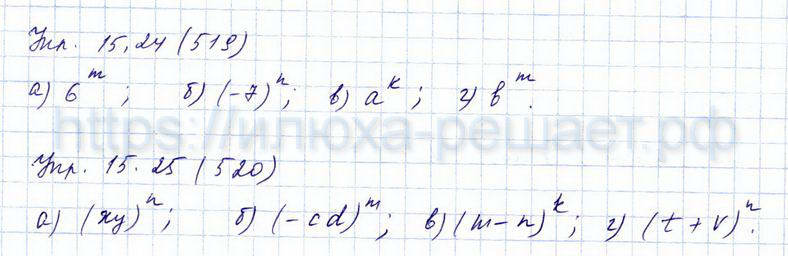 Упр. 15.24 (519)
а) 6^m ; б) (-7)^n ; в) a^k ; г) b^m .
https://илюха-решает.рф
Упр. 15.25 (520)
а) (xy)^n ; б) (-cd)^m ; в) (m-n)^k ; г) (t+r)^n .